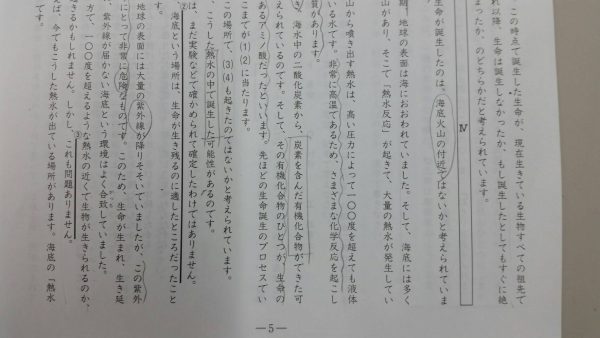 この時点で誕生した生命が、現在生きている生物すべての祖先で
れ以降、生命は誕生しなかったか、もし誕生したとしてもすぐに絶
まったか、のどちらかだと考えられています。
Ⅳ
生命が誕生したのは、海底火山の付近ではないかと考えられていま
期、地球の表面は海におおわれていました。そして、海底には多く
山があり、そこで「熱水反応」が起きて、大量の熱水が発生してい
山から噴き出す熱水は、高い圧力によって一〇〇度を超えても液体
いる水です。非常に高温であるため、さまざまな化学反応を起こし
質があります。
き、海水中の二酸化炭素から、炭素を含んだ有機化合物ができた
えられているのです。そして、その有機化合物のひとつが、生命の
あるアミノ酸だったといいます。先ほどの生命誕生のプロセスでい
こまでが(1)(2)に当たります。
この場所で、(3)(4)も起きたのではないかと考えられています。
、こうした熱水の中で誕生した可能性があるのです。
は、まだ実験などで確かめられて確定したわけではありません。
②海底という場所は、生命が生き残るのに適したところだったこと
地球の表面には大量の紫外線が降りそそいでいましたが、この紫外
にとって非常に危険なものです。このため、生命が生まれ、生き延
紫外線が届かない海底という環境はよく合致していました。
方で、一〇〇度を超えるような熱水の近くで生物が生きられるのか、
るかもしれません。しかし、③これも問題ありません。
えば、今でもこうした熱水が出ている場所があります。海底の「熱水
―5―